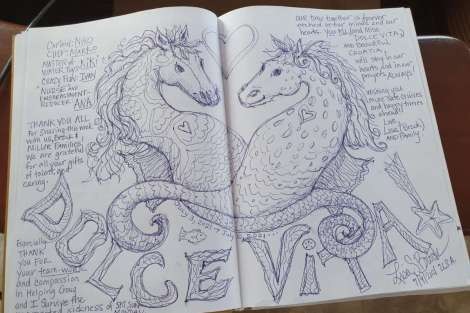 CAPTAIN: NIKO
CHEF: MARKO
MASTER OF
WATER TOYS
CRAZY FUN: IVAN
NURSE AND
ANA
THANK YOU ALL
for sharing this week
with us,
Miller Families.
We are grateful
for all your gifts
of talent and
caring.
Especially
THANK
YOU FOR
your team-work
and compassion
in Helping
and I survive the
sickness of
OUR time together is forever
etched in our minds and our
hearts. You all (and Miss
DOLCE VITA)
and beautiful
CROATIA
will stay in our
hearts and in our
prayers ALWAYS
Wishing you
more safe waters
and happy times
ahead!
Love,
and Family
DOLCE VITA!